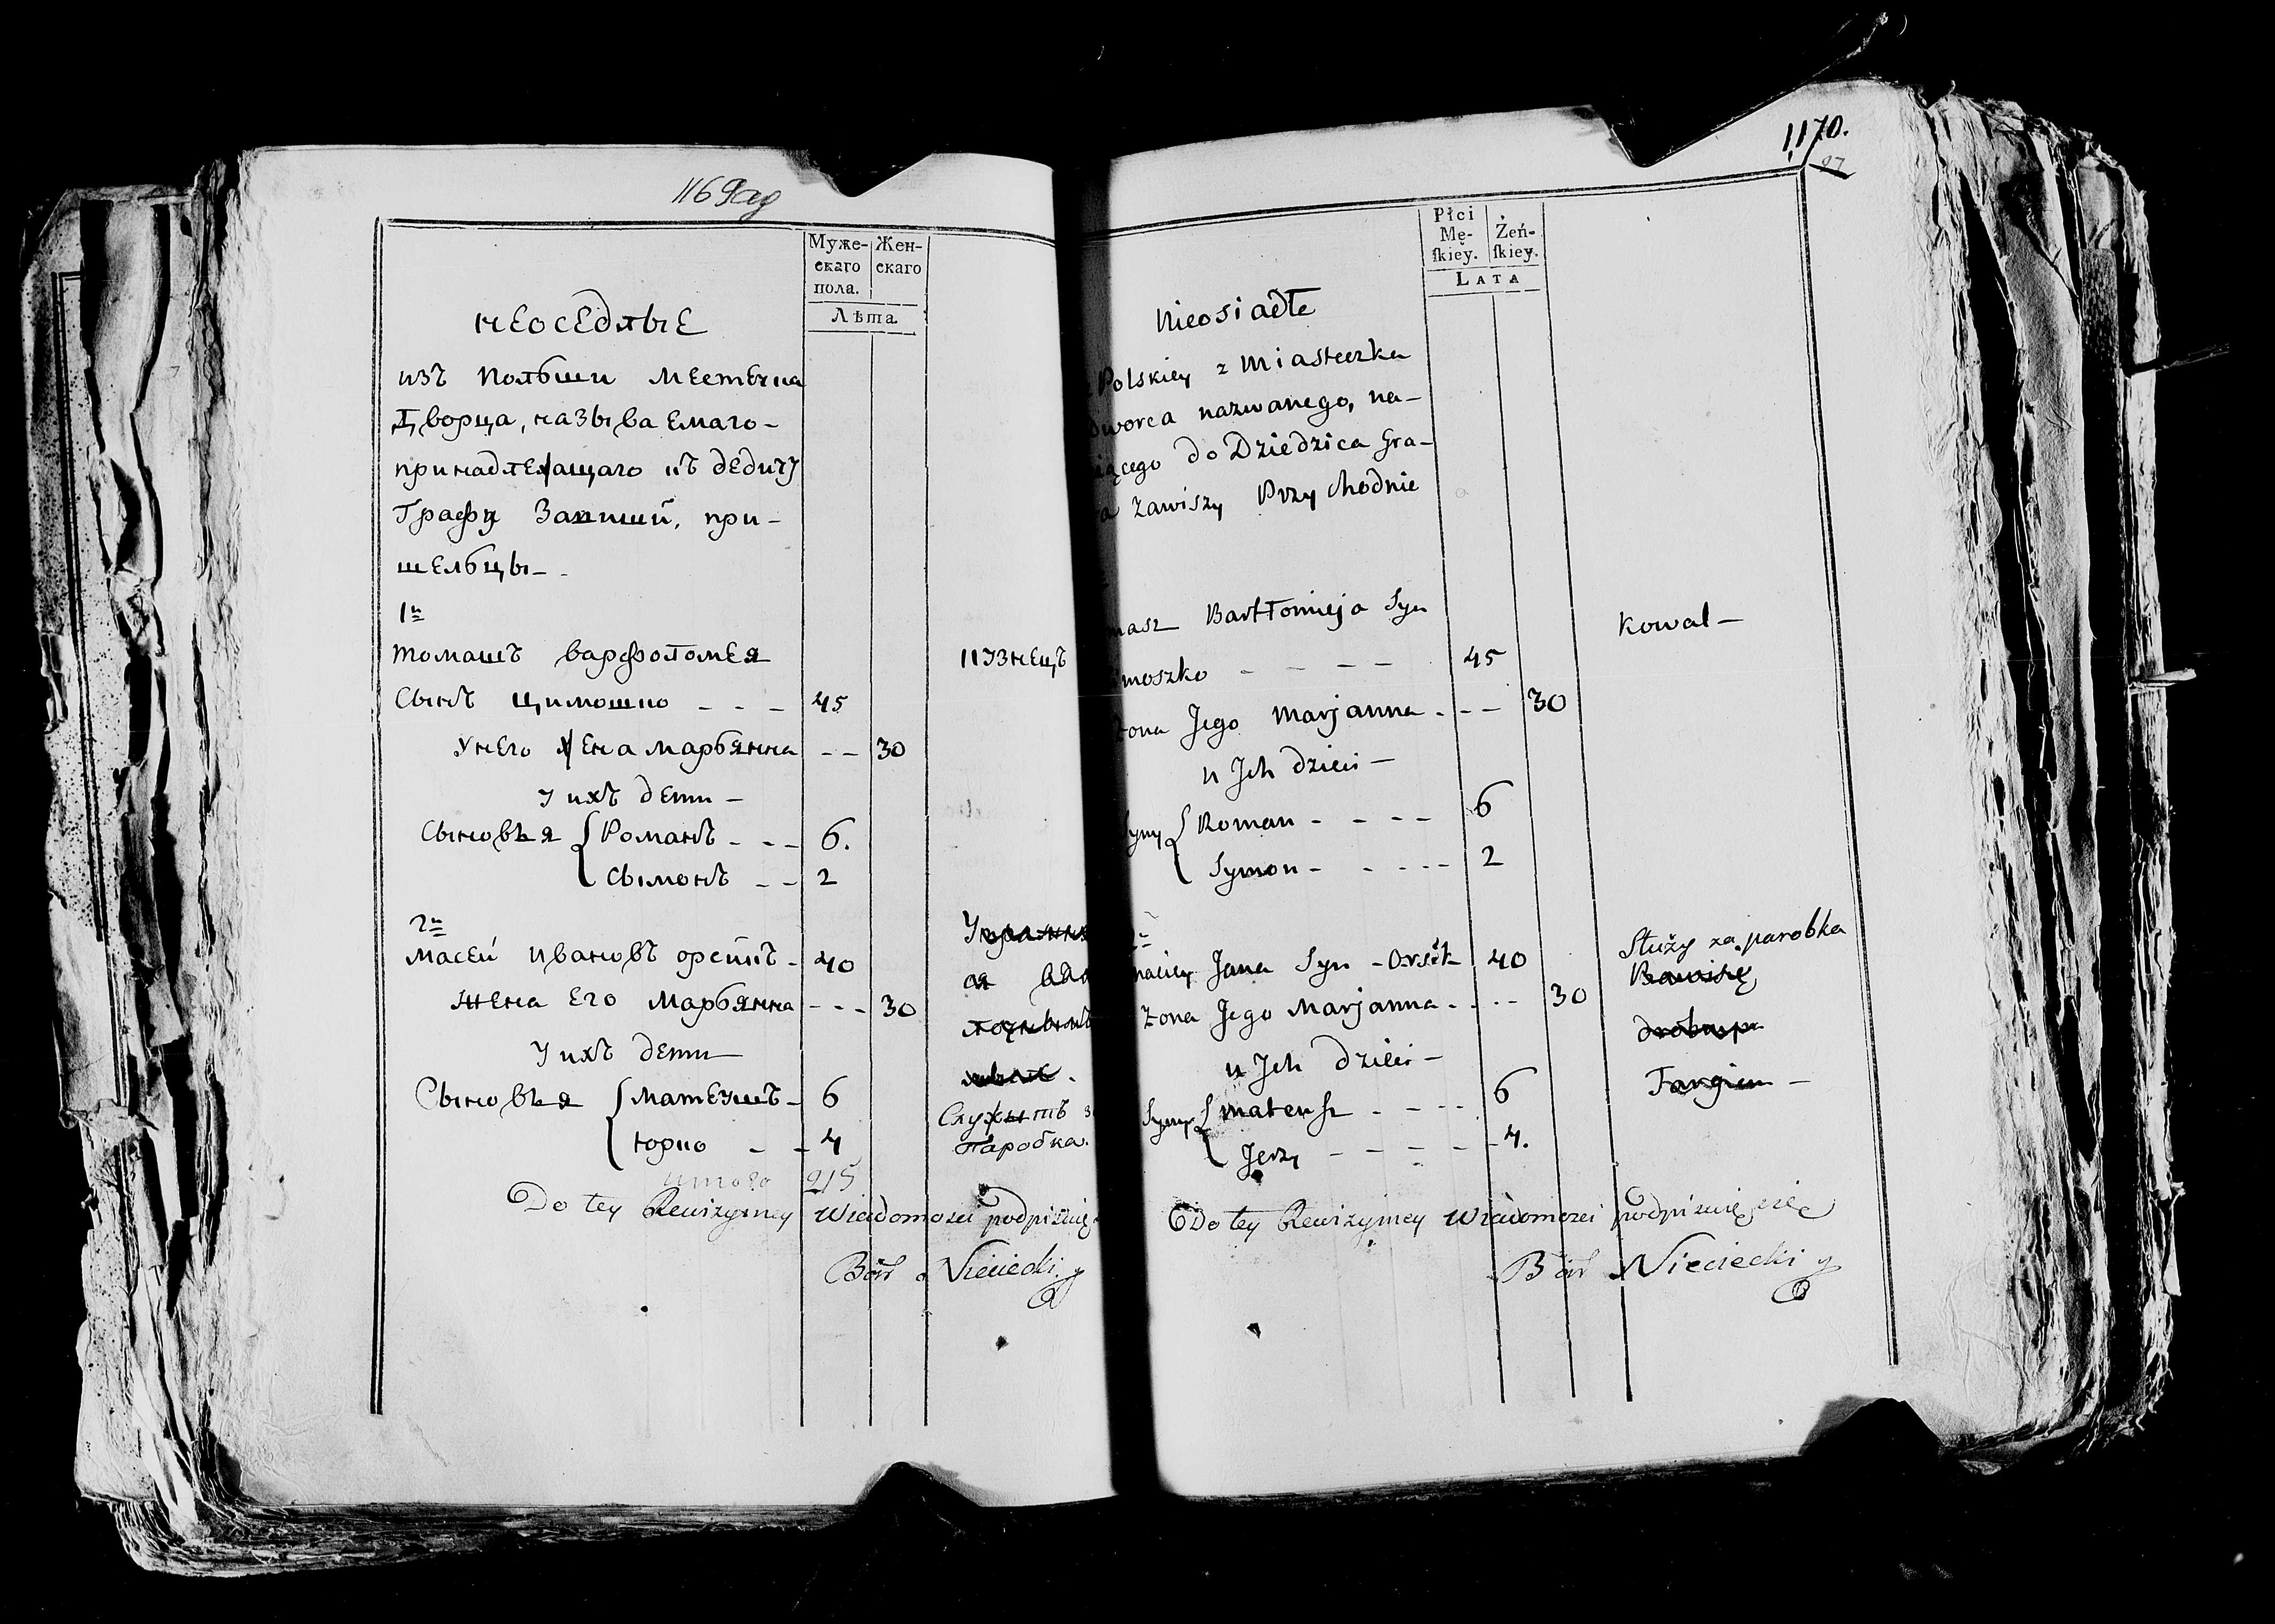 1169
Муже-
скаго
пола.
Жен-
скаго
Лѣта
неоседлые
изъ Польши местечка
Дворца, называемаго-
принадлежащаго къ дедичу
Графу Завишй, при-
шельцы-
1й
томашъ варфоломея
сынъ Цимошко - - - 45
кузнецъ
Унего жена марьянна -- 30
У ихъ дети -
Сыновья { Романъ - - - 6.
Сымонъ - - 2
2й
масей ивановъ - 40
жена его марьянна - - - 30
У ихъ дети
Сыновья { матеушъ - 6
юрко - - 4
Служытъ
Паробка.
итого 215
Do tey Rewizyiney Wiadomosci podpisuię
Nieciecki
1170.
27
Płci
Mę-
ſkiey.
Żeń-
ſkiey.
LATA
Nieosiadłe
Polskiey z Miasteczka
dworca nazwanego, na-
iącego do Dziedzica Gra-
a Zawiszy Przychodnie
masz Bartłomieja Syn
Kowal -
moszko - - - - 45
żona Jego Marjanna - - - 30
u Jch dzieci -
Syny { Roman - - - - 6
Symon - - - - - 2
Służy za parobka
maciey Jana Syn - 40
żona Jego Marjanna - - - - 30
u Jch dzieci -
Syny { mateusz - - - - 6
Jerzy - - - - - 4.
Do tey Rewizyiney Wiadomosci podpisuię się
Nieciecki